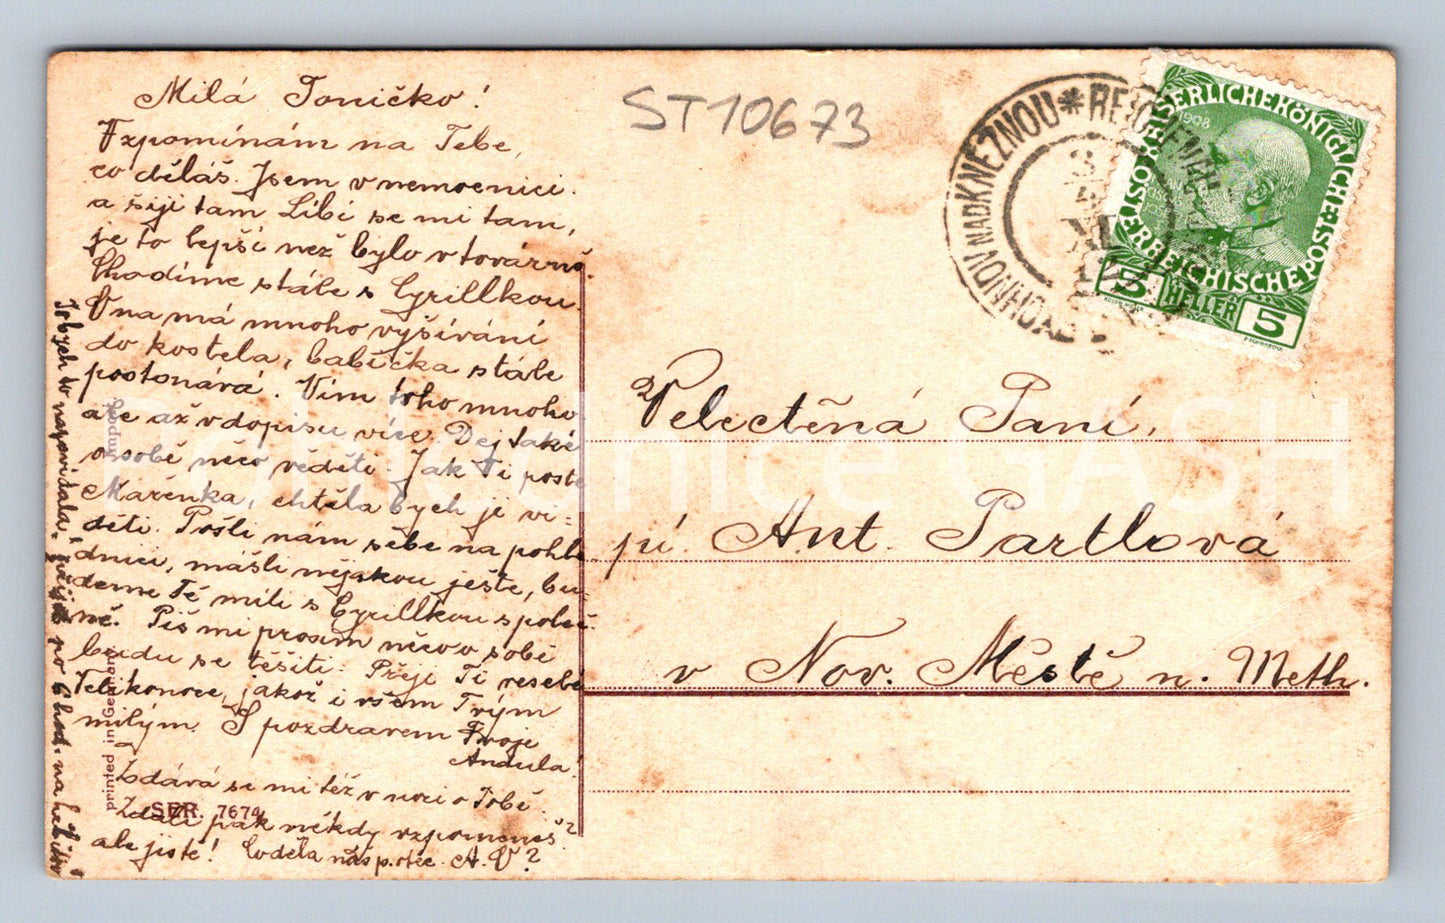 Milá Toničko!
Vzpomínám na Tebe,
co děláš. Jsem v nemocnici.
a šiji tam. Líbí se mi tam,
je to lepší než bylo v továrně.
Chodíme stále s Cyrillkou.
Ona má mnoho vyšívání
do kostela, babička stále
postonává. Vím toho mnoho
ale až v dopisu více. Dej také
o sobě něco věděti. Jak Ti poste
Mařenka, chtěla bych je vi-
děti. Pošli nám sebe na pohle
dnici, mášli nějakou ještě, bu-
deme Tě míti s Cyrillkou společ-
ně. Piš mi prosím něco o sobě
budu se těšiti. Přeji Ti veselé
Velikonoce, jakož i všem Tvým
milým. S pozdravem Tvoje
Andula!
Zdává se mi též v noci o Tobě.
Zdali pak někdy vzpomeneš?
ale jistě! Co děla A.V?
ST10673
RYCHNOV NAD KNĚŽNOU * REICHENAU
KAISERLICHE KÖNIGLICHE
ÖSTERREICHISCHE POST
1908
5 HELLER 5
Velectěná Paní,
pí. Ant. Partlová
v Nov. Městě n. Meth.
Printed in Germany
SER. 7674
Pohlednice GASH